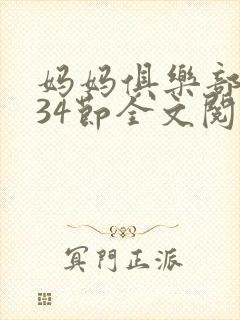 妈妈俱樂部
34節全文閱
冥門正派